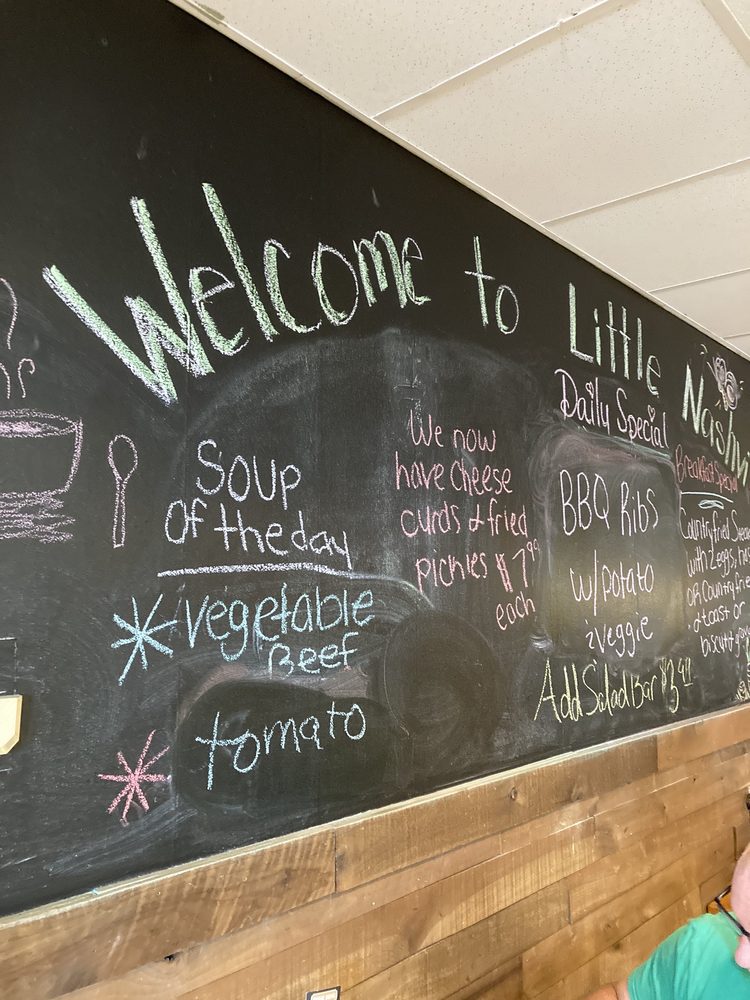 Welcome to Little
Soup
of the day
*vegetable
Beef
*tomato
We now
have cheese
curds & fried
pickles $7.99
each
Daily Special
BBQ Ribs
w/potato
& veggie
Add Salad Bar
Breakfast Special
Country fried
with 2 eggs,
or Country
& toast or
biscuit